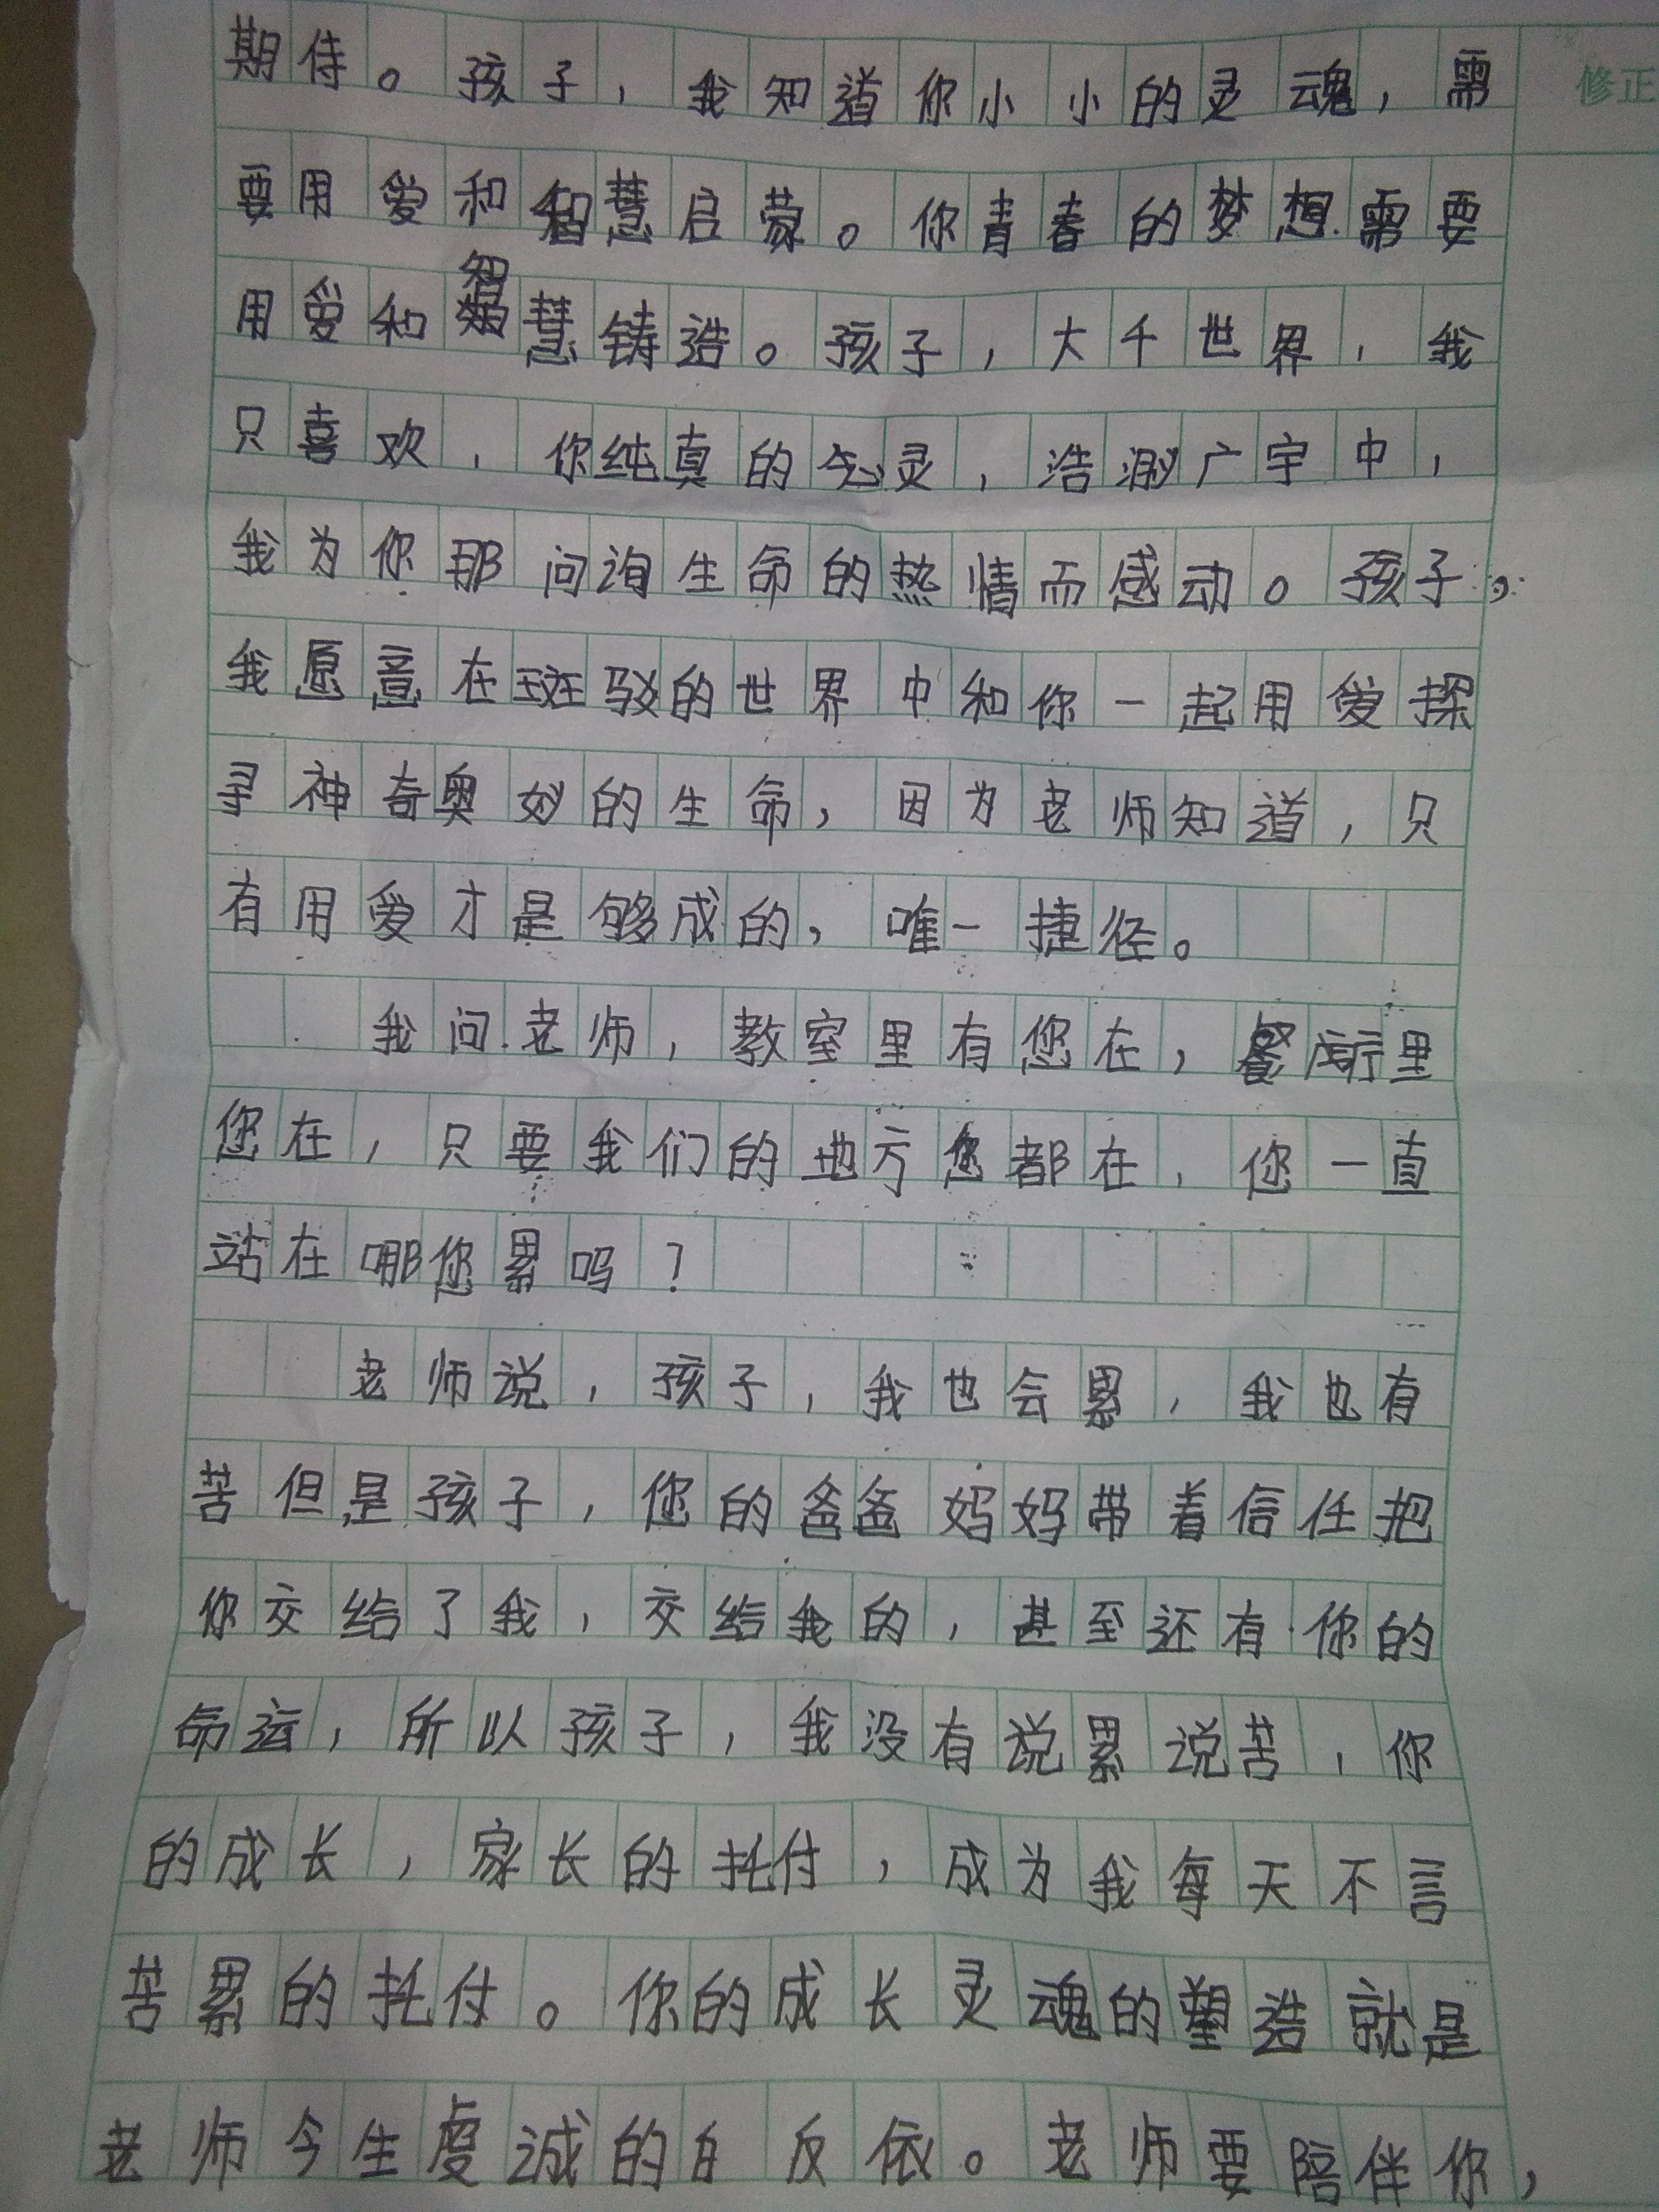 期待。孩子，我知道你小小的灵魂，需
修正
要用爱和智慧启蒙。你青春的梦想需要
用爱和智慧铸造。孩子，大千世界，我
只喜欢，你纯真的心灵，浩渺广宇中，
我为你那问询生命的热情而感动。孩子，
我愿意在斑驳的世界中和你一起用爱探
寻神奇奥妙的生命，因为老师知道，只
有用爱才是够成的，唯一捷径。
我问老师，教室里有您在，餐厅里
您在，只要我们的地方您都在，您一直
站在哪您累吗？
老师说，孩子，我也会累，我也有
苦但是孩子，您的爸爸妈妈带着信任把
你交给了我，交给我的，甚至还有你的
命运，所以孩子，我没有说累说苦，你
的成长，家长的托付，成为我每天不言
苦累的托付。你的成长灵魂的塑造就是
老师今生虔诚的白反依。老师要陪伴你，